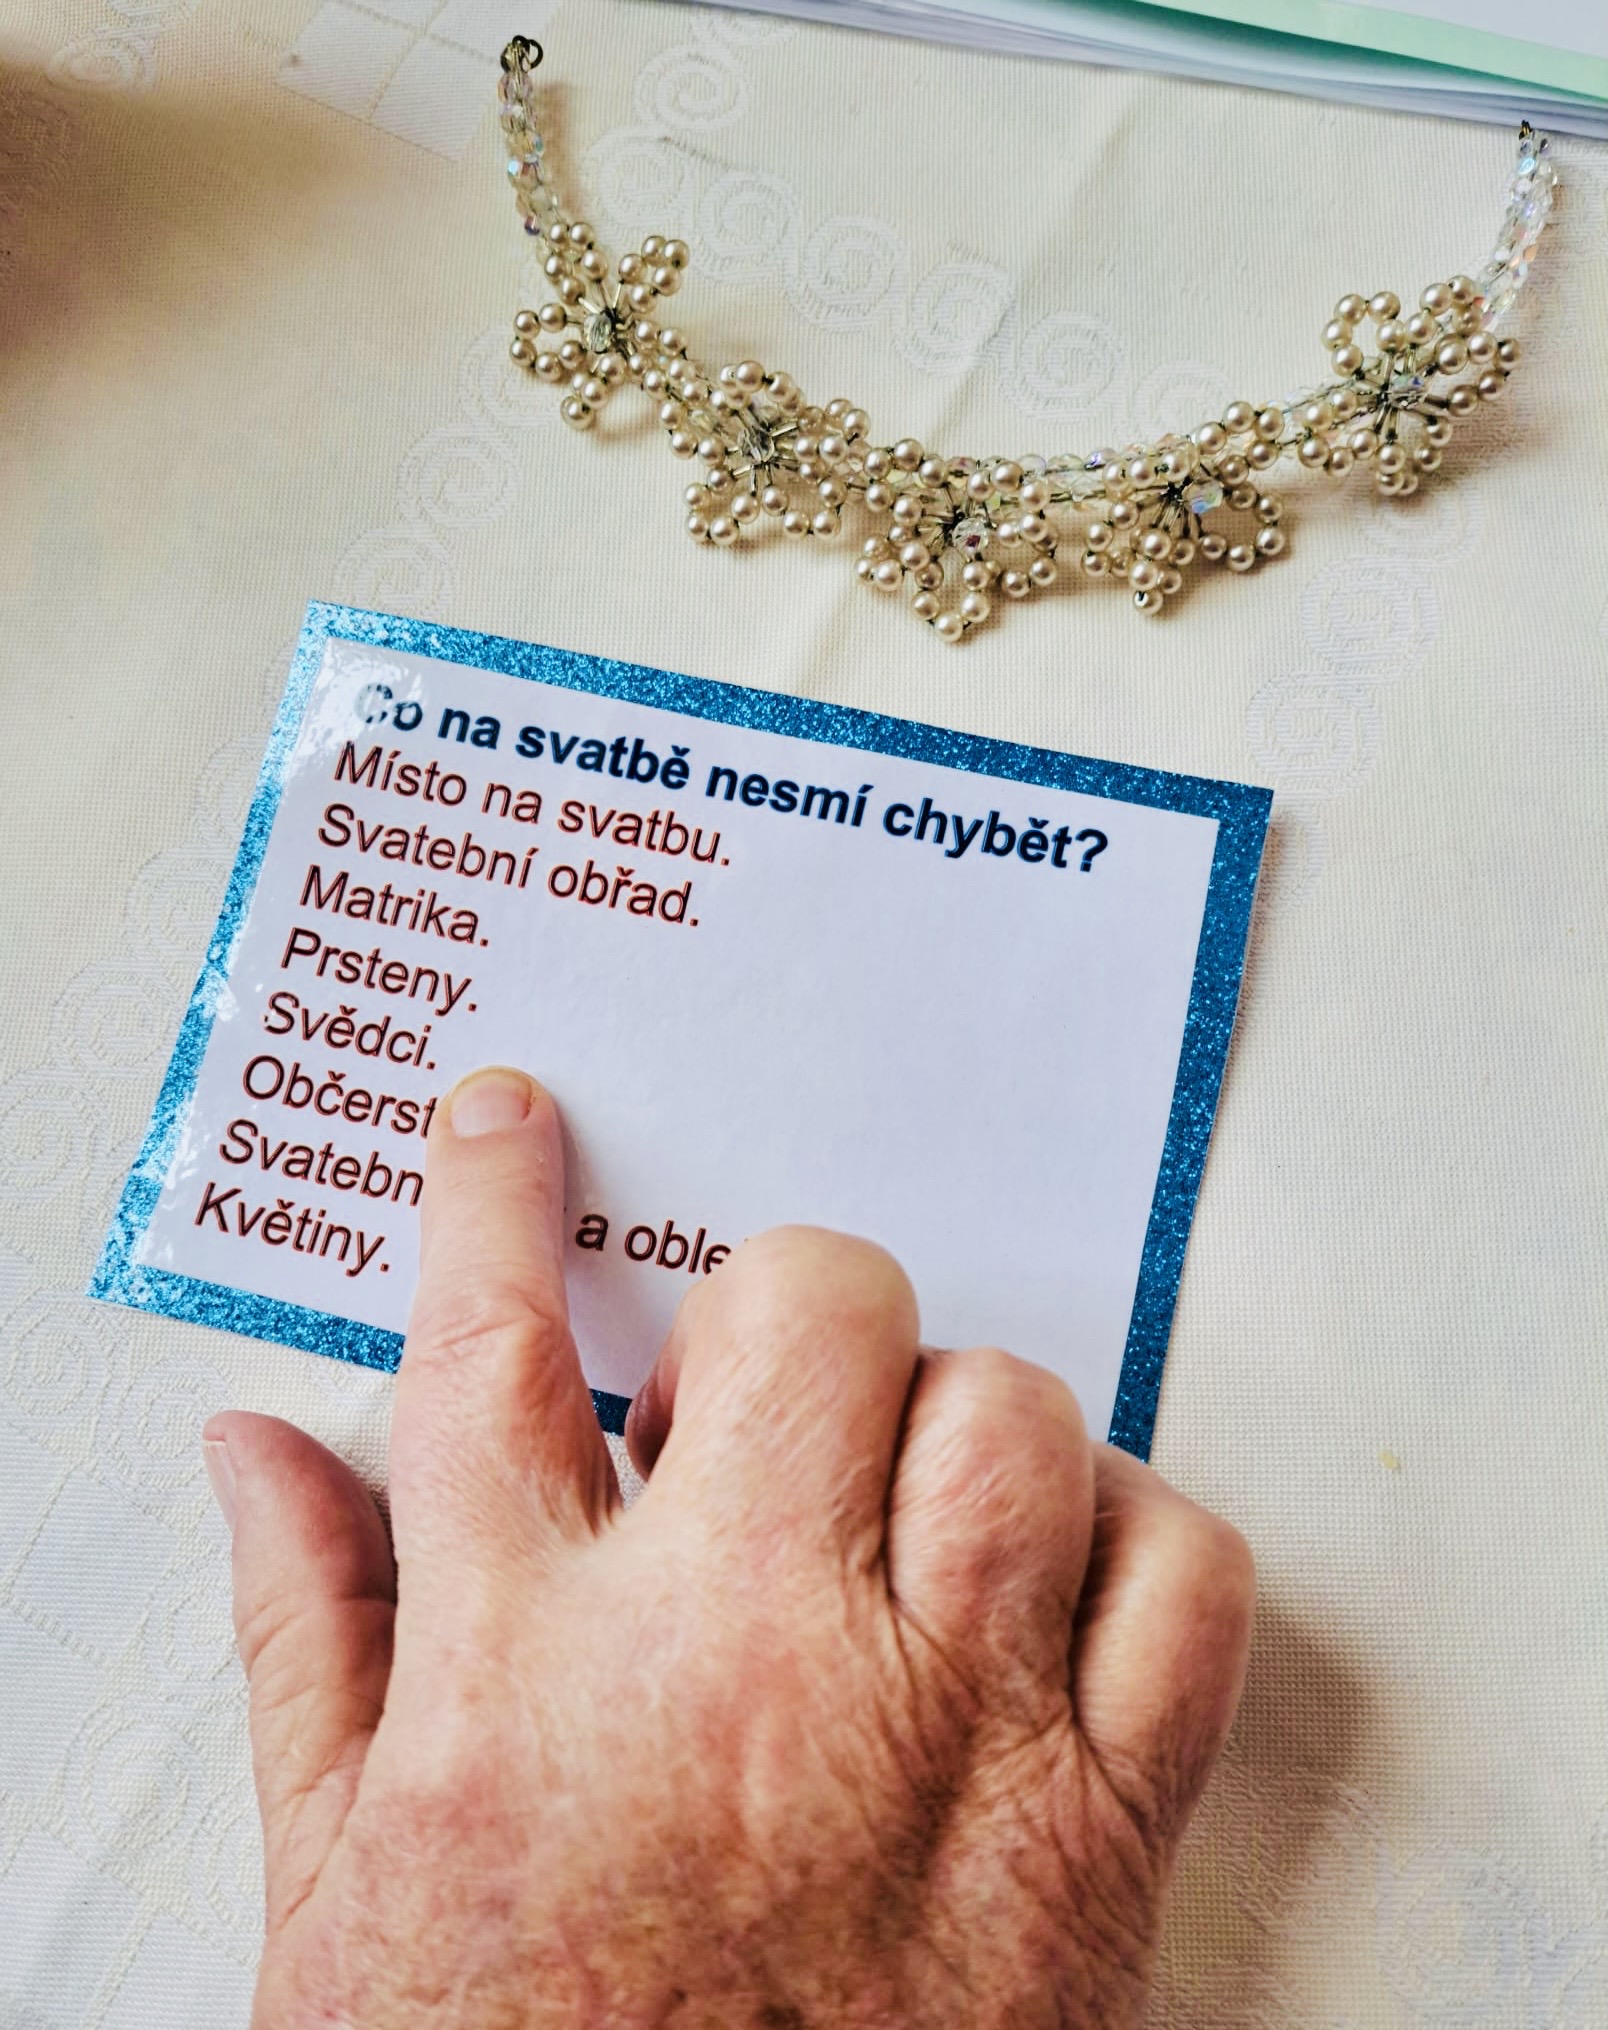 Co na svatbě nesmí chybět?
Místo na svatbu.
Svatební obřad.
Matrika.
Prsteny.
Svědci.
Občerst
Svatebn a oble
Květiny.